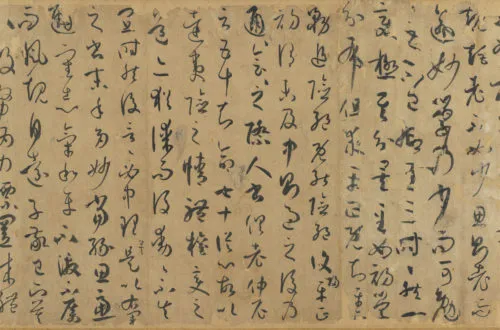 規矩老不如少思則老而
逾妙學乃少而可勉
勉之不已抑有三時時然一
變極其分矣至如初學
分布但求平正既知平正
務追險絕既能險絕復歸平正
初謂未及中則過之後乃
通會通會之際人書俱老仲尼
云五十知命七十從心故以
達夷險之情體權變之
道亦猶謀而後動動不失
宜時然後言言必中理矣是以右軍
之書末年多妙當緣思慮通
審志氣和平不激不厲
而風規自遠子敬已下莫不
鼓努為力標置成體